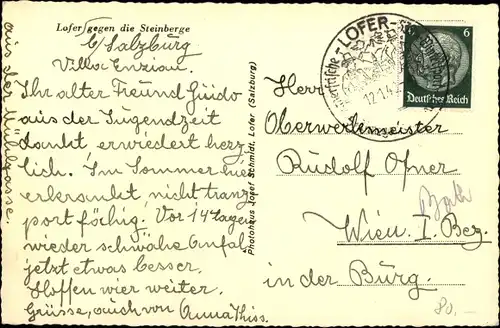 Lofer gegen die Steinberge
b/Salzburg
Villa Enzian.
Ihr alter Freund Guido
aus der Jugendzeit
dankt erwiedert herz
lich. Im Sommer hier
erkrankt, nicht tranz
port fähig. Vor 14 Tagen
wieder schwähe Anfal
jetzt etwas besser.
Hoffen wier weiter.
Grüsse, auch von Anna Thiss.
aus der
Photohaus Josef Schmidt, Lofer (Salzburg)
LOFER
12.1.4
6
Deutsches Reich
Herr
Oberwerkmeister
Rudolf Ofner
Wien I. Bez.
in der Burg.
80.-